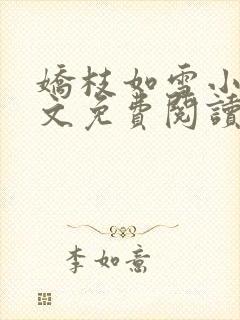 嬌枝如雪小
文免費閱讀
李如意